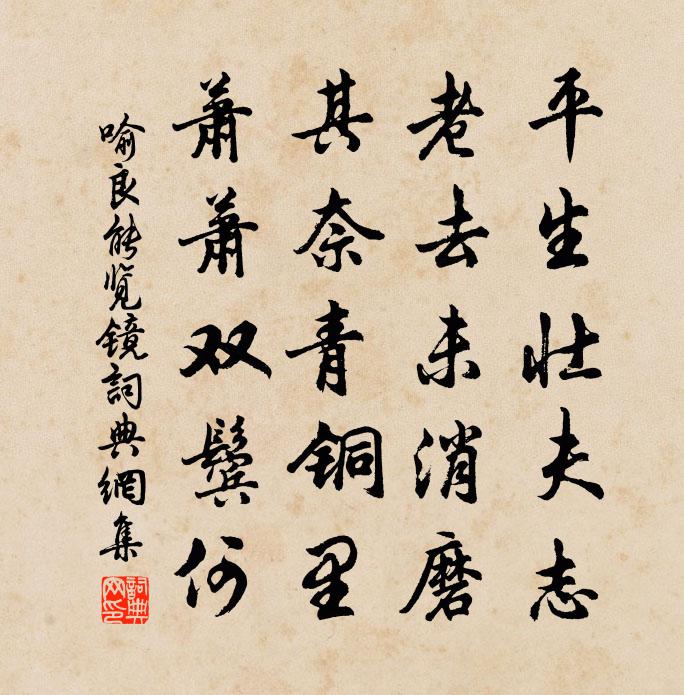 平生壮夫志
老去未消磨
其奈青铜里
萧萧双鬓何
喻良能览镜詞典網集
詞典网印